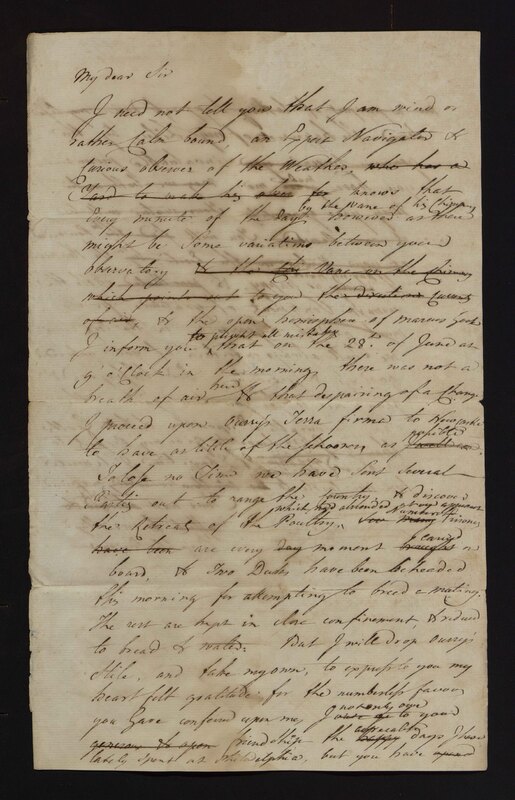 My dear Sir
I need not tell you that I am wind or
rather Calm bound, an Expert Navigator &
Curious observer of the Weather, who has a
knows that
by the vane of his Chimney
every minute of the day. However as there
might be some variations between your
observatory & the Vane on the Chimney
which points out to you the direction Current
of air, & the open hemisphere of
to prevent all mistakes
I inform you, that on the 28th of June at
9 o'Clock in the morning, there was not a
breath of air & that despairing of a Change
I proceed upon Terra firma to
possible
to have as little of the schooner, as
To lose no Time we have sent several
Parties out to range the Country & discover
which had absconded
the Retreat of the Poultry.
have been are every day moment brought on
board, & Two Ducks have been beheaded
this morning for attempting to breed a mutiny.
The rest are kept in close confinement & reduced
to bread & water. But I will drop
stile, and take my own, to express to you my
heart felt gratitude for the numberless favours
you have conferred upon me, I not only owe to your
friendship the agreeable days I have
lately spent at Philadelphia, but you have